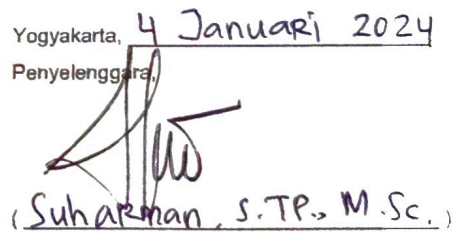 Yogyakarta, 4 Januari 2024
Penyelenggara,
(Suharman, S.TP., M.Sc.)